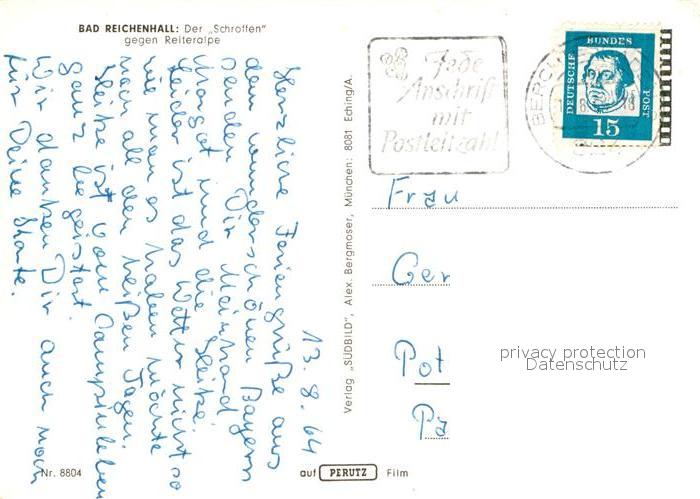 BAD REICHENHALL: Der „Schroffen"
gegen Reiteralpe
13. 8. 64
Herzliche Feriengrüße aus
dem wunderschönen Bayern
senden Dir Meinhard
Margot und die Heike.
Leider ist das Wetter nicht so
wie man es haben möchte
nach all den heißen Tagen.
Heike ist vom Campingleben
ganz begeistert.
Wir danken Dir auch noch
für Deine Karte.
Nr. 8804
Verlag „SÜDBILD", Alex. Bergmoser, München: 8081 Eching/A.
auf PERUTZ Film
Jede
Anschrift
mit
Postleitzahl
DEUTSCHE BUNDES POST
15
Frau
Ger
Pot
Pa
privacy protection
Datenschutz